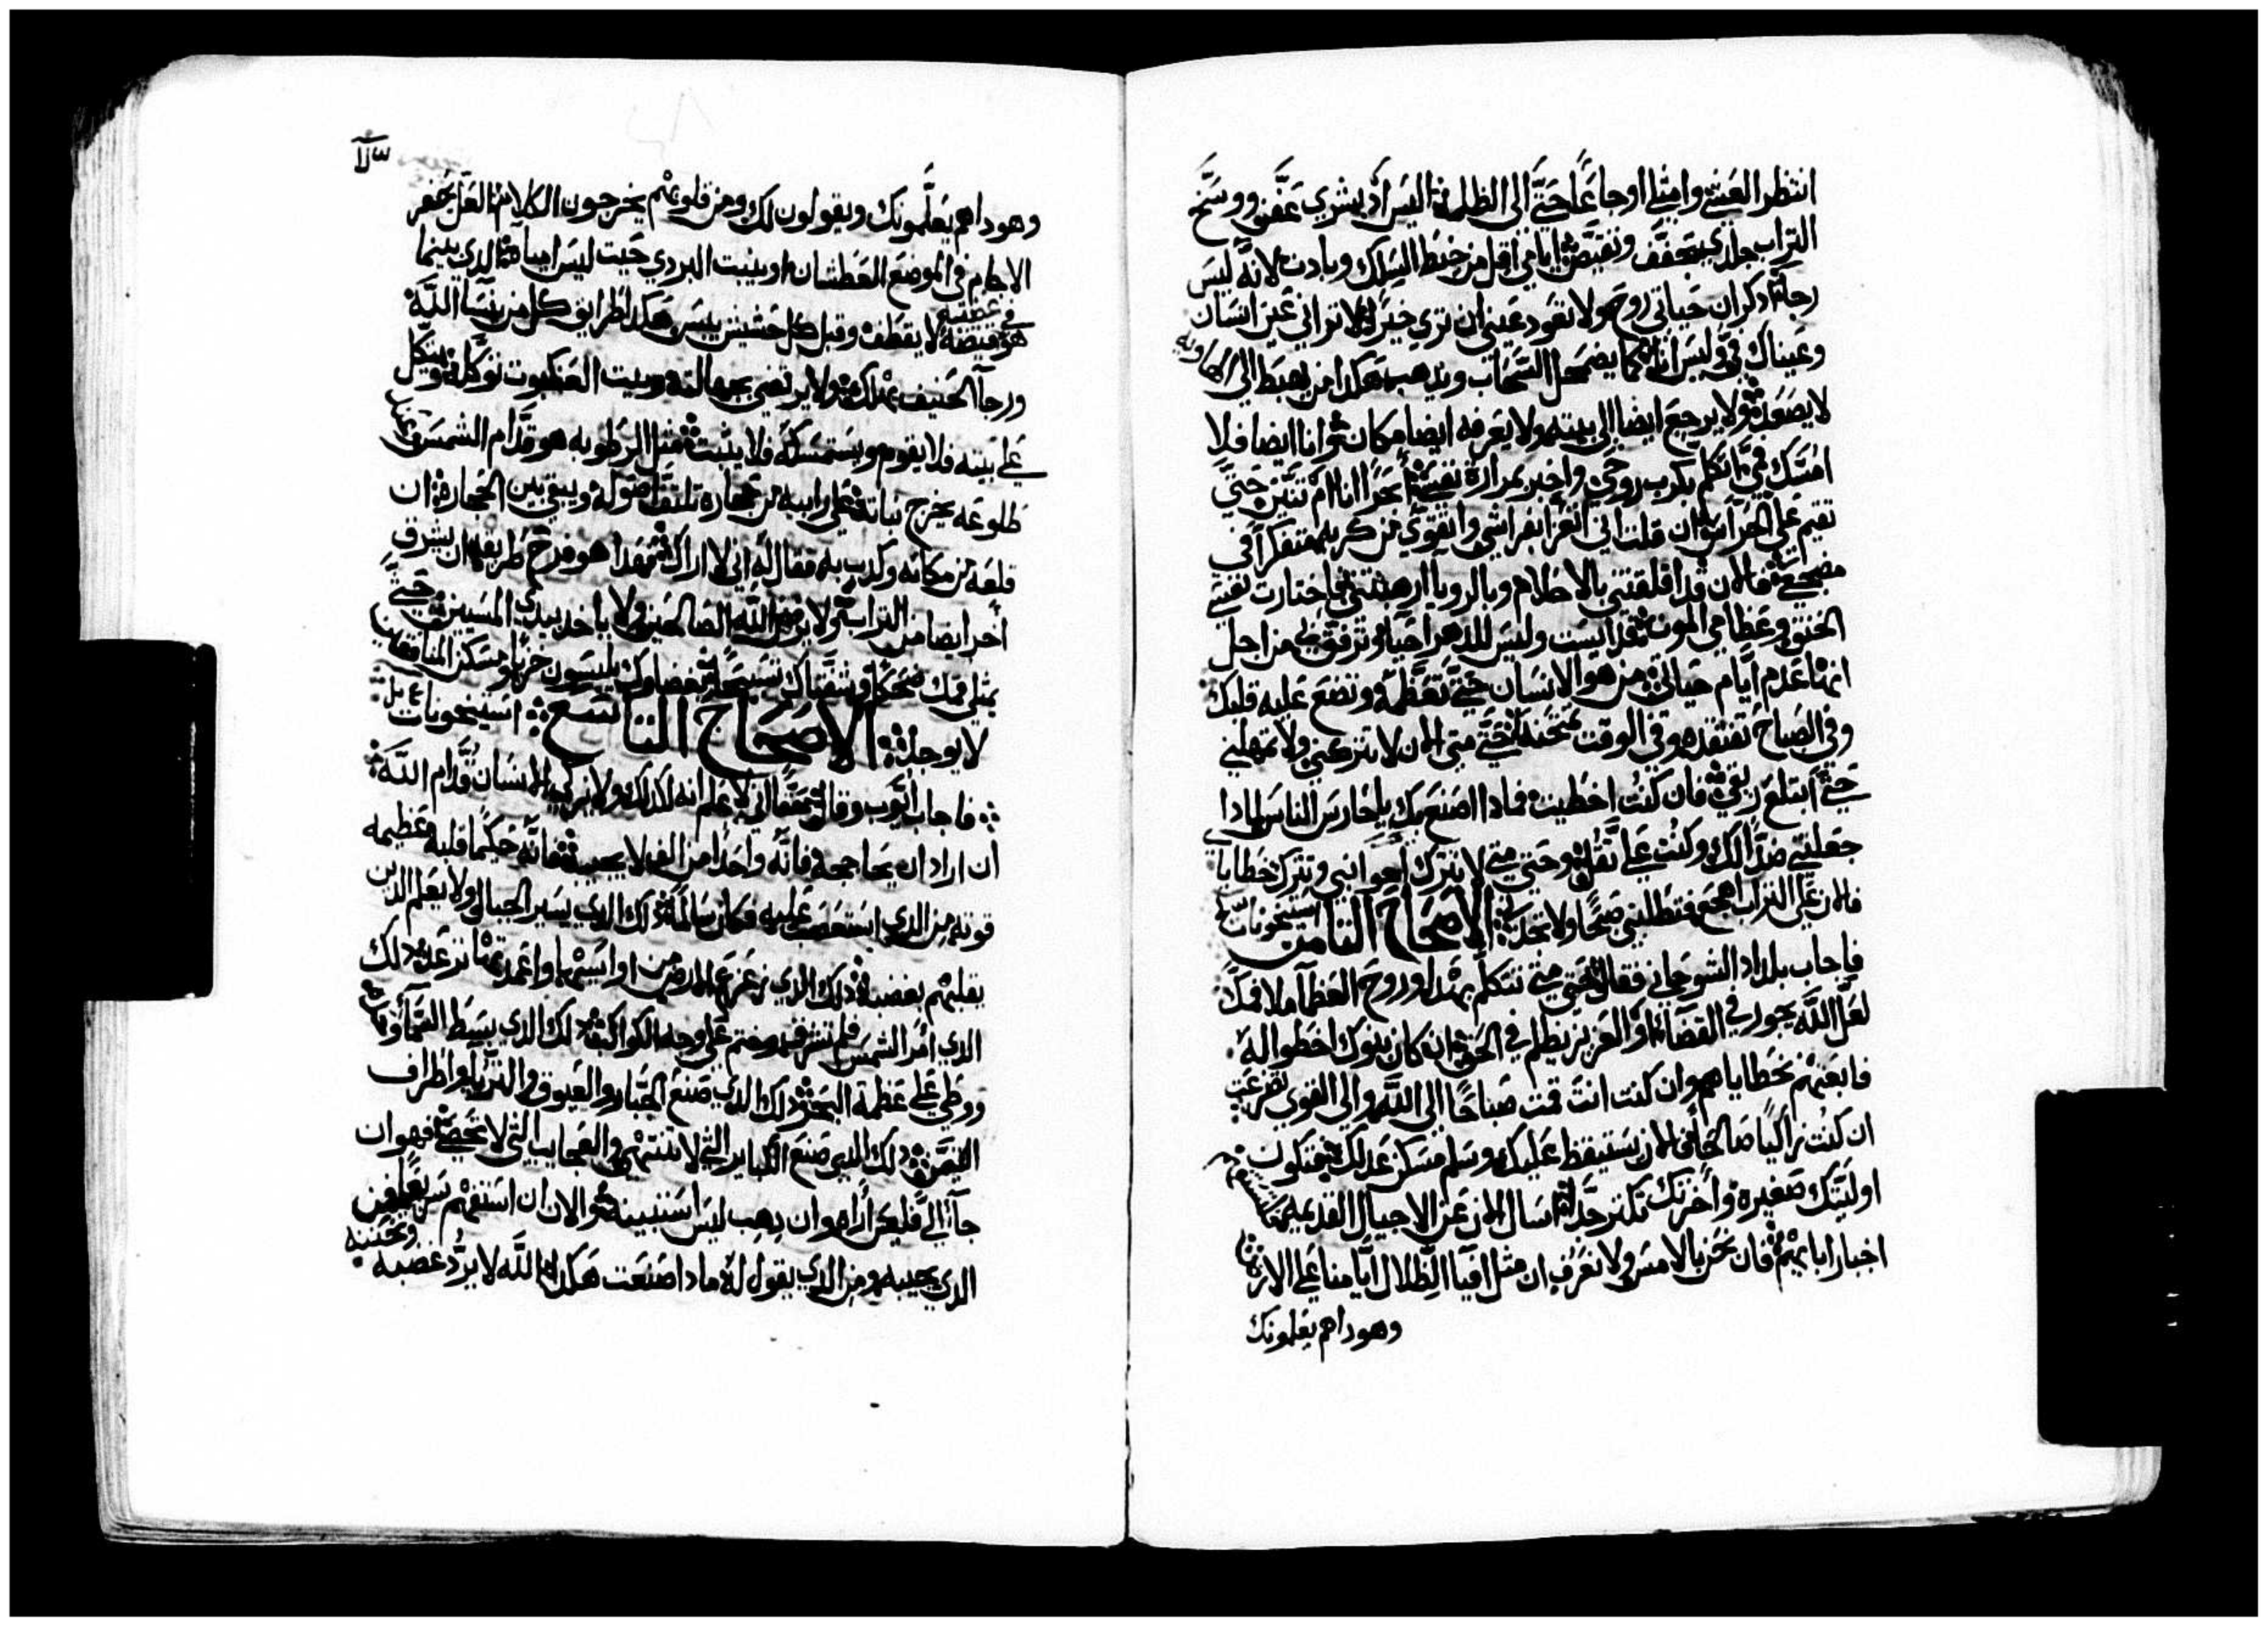 انتظر العشي وامتلي اوجاعًا حتّي الي الظلمه اليس اذ بشري عفّن ووسّخ
التراب جلدي يتجفّف وتقبّض ايامي اقل من خيط السلك وبادت لانه ليس
رجاء اذكر ان حياتي روح ولا تعود عيني ان تري خيرًا لا تراني عين انسان
وعيناك فيّ وليس انا كما يضمحل السّحاب ويذهب هكذا من يهبط الي الهاويه
لا يصعد ولا يرجع ايضا الي بيته ولا يعرفه ايضا مكانه وانا ايضا فلا
امسّك فمي اتكلم بكرب روحي واخبر بمرارة نفسي أبحرًا انا ام تنّين حتّي
تقيم علي الحراس ان قلت اني اتعزا بفراشي واتقوي من كربه متفكرًا في
مضجعي فالان قد اقلقتني بالاحلام وبالرويا ارهبتني فاختارت نفسي
الخنق وعظامي الموت قد ايست وليس للدهر احيا وترفّق بي من اجل
انها عدم ايّام حياتي من هو الانسان حتّي تعظّمه وتضع عليه قلبك
وفي الصباح تفتقده وفي الوقت تمتحنه حتّي متي الان لا تتركني ولا تمهلني
حتّي أبتلع ريقي فان كنت اخطيت فماذا اصنع بك يا حارس الناس لماذا
جعلتني ضدًا لك وكنت علي ثقل وحتي متي لا تترك جوانبي وتترك خطايا
فالان علي التراب اهجع فتطلبني صبحًا ولا تجدني الاصحاح الثامن استيخونات
فاجاب بلداد الشوحاني فقال حتي متي تتكلّم بهذا وروح العظام ملا فمك
لعلّ اللّه يجور في القضاء او العزيز يظلم في الحق ان كان بنوك اخطوا له
فابعثهم بخطاياهم وان كنت انت قمت صباحًا الي اللّه والي القوي تضرعت
ان كنت زاكيًا صالحًا فالان يستيقظ عليك وسلم مسكن عدلك فتكون
اوليتك صغيرة وأخرتك تكثر جدًا اسال الان عن الاجيال القديمه
اخبار ابايهم فان نحن بالامس ولا نعرف ان مثل افيا الظلال ايّامنا علي الارض
وهوداهم يعلمونك
وهوداهم يعلّمونك ويقولون لك ومن قلوبهم يخرجون الكلام العلّ يخضر
الاجام في الموضع العطشان او ينبت البردي حيث ليس مياه الذي بينما
هو في عصبته لا يقطف وقبل كل حشيش ييبس هكذا طرايق كل من ينسا اللّه
ورجا الحنيف يهلك ولا يرتضي بجهالته وبيت العنكبوت توكّله ويتكل
علي بيته فلا يقوم ويستمسكه فلا يثبت مثل الرطوبه هو قدّام الشمس
طلوعه يخرج نباته علي رابيه من حجاره تلتف اصوله ويبقي بين الحجاره ان
قلعه من مكانه وكذب به فقال له اني لا اراك فهذا هو فرح طريقه ان يشرف
أخر ايضا من التراب ولا يرفض اللّه الصالحين ولا ياخذ بيد المسيين حتّي
يمتلي فمك ضحكًا وشفتاك تسبيحًا مبغضوك يلبسون خزيًا ومسكن المنافقين
لا يوجد الاصحاح التاسع استيخونات
فاجاب ايّوب وقال حقًا اني لا علم انه كذلك ولا يزكي الانسان قدّام اللّه
ان اراد ان يحاججه فانّه واحدًا من الف لا يجيبه فانّه حكيمًا قلبه وعظيمه
قوته من الذي استعصب عليه فكان سالمًا ذلك الذي يسير الجبال ولا يعلم الذين
يقلبهم بغضبه ذلك الذي يزعزع الارض من اواسيسها واعمدتها تزعد ذلك
الذي امر الشمس فلم تشرق وختم علي وجه الكواكب ذلك الذي يبسط السّما
ووطي علي عظمة البحر ذلك الذي صنع الجبّار والعيوق والثريا واطراف
التيمن ذلك الذي صنع الكباير التي لا تنتهي والعجايب التي لا تحصي فهو ان
جآء اليّ فليس أراه وان ذهب ليس استبينه والان ان استفهم سريعًا فمن
الذي يجيبه ومن الذي يقول له ماذا صنعت هكذا اللّه لا يردّ غضبه